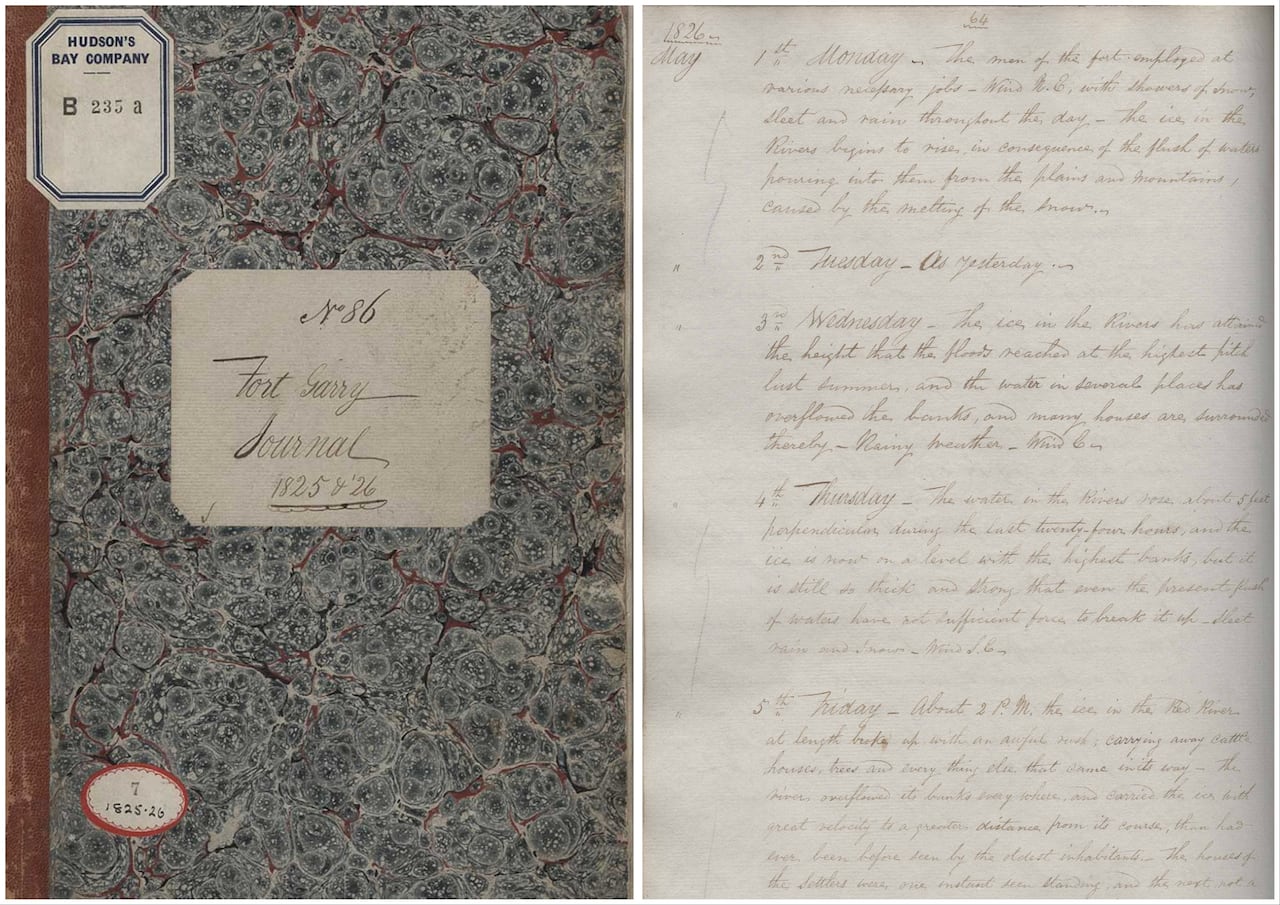 HUDSON'S
BAY COMPANY
B 235 a
No 86
Fort Garry
Journal
1825 & '26
7
1825-26
64
1826
May 1st " Monday - The men of the fort employed at
various necessary jobs - Wind N.E, with showers of snow,
sleet and rain throughout the day - The ice in the
Rivers begins to rise, in consequence of the flush of waters
pouring into them from the plains and mountains,
caused by the melting of the snow.
" 2nd " Tuesday - As yesterday.
" 3rd " Wednesday - The ice in the Rivers has attained
the height that the floods reached at the highest pitch
last summer, and the water in several places has
overflowed the banks, and many houses are surrounded
thereby - Rainy Weather - Wind E
" 4th " Thursday - The water in the Rivers rose about 5 feet
perpendicular during the last twenty-four hours, and the
ice is now on a level with the highest banks, but it
is still so thick and strong that even the present flush
of waters have not sufficient force to break it up - Sleet
rain and snow - Wind S.E
" 5th " Friday - About 2 P.M. the ice in the Red River
at length broke up with an awful rush; carrying away cattle
houses, trees and every thing else that came in its way - The
river overflowed its banks every where, and carried the ice with
great velocity to a greater distance from its course, than had
ever been before seen by the oldest inhabitants - The houses of
the settlers were one instant seen standing, and the next, not a